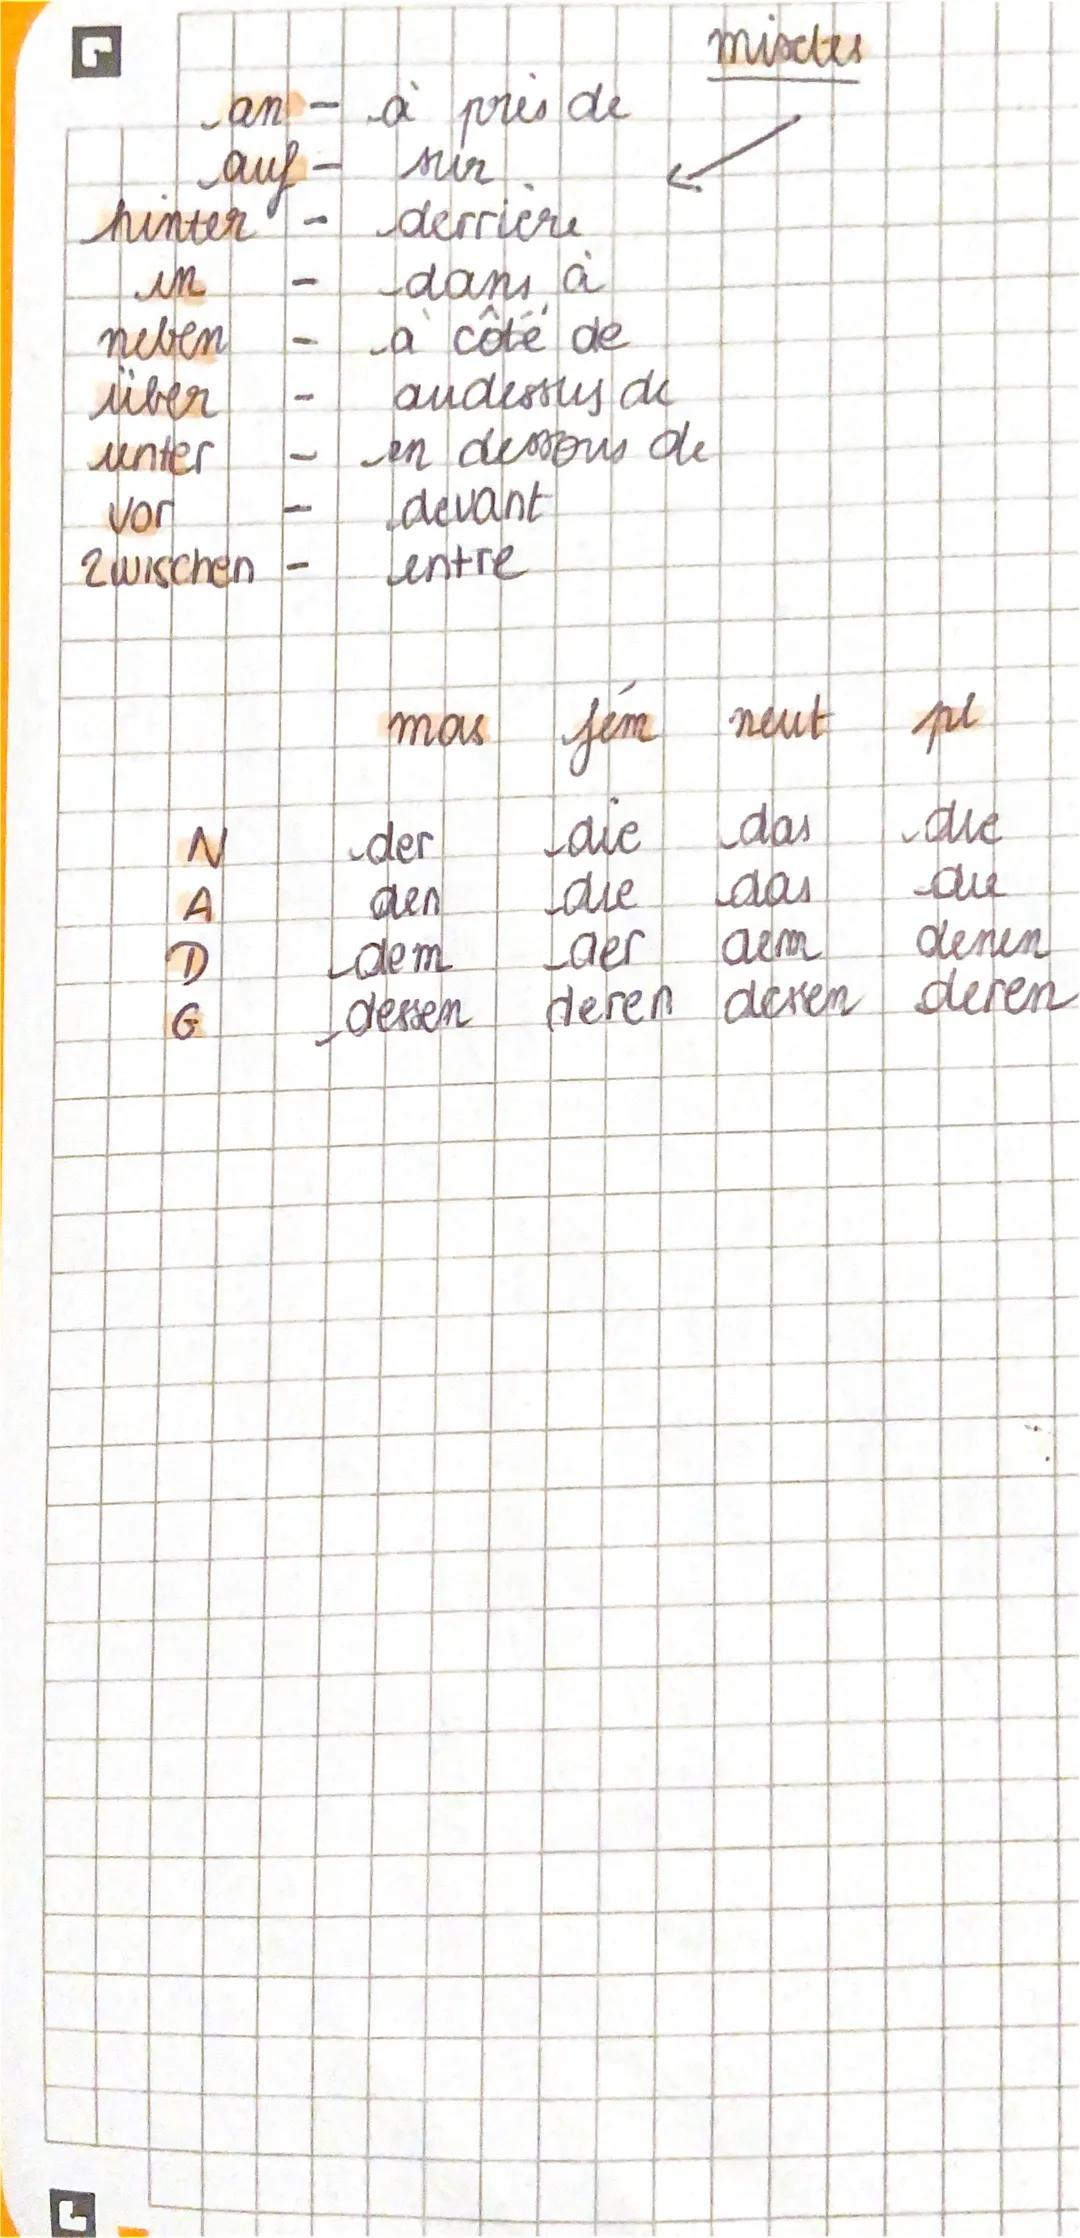 mixtes
an - à près de
auf - sur
hinter - derrière
in - dans à
neben - à côté de
über - audessus de
unter - en dessous de
vor - devant
zwischen - entre
mas fém neut pl
N der die das die
A den die das die
D dem der dem denen
G dessen deren dessen deren